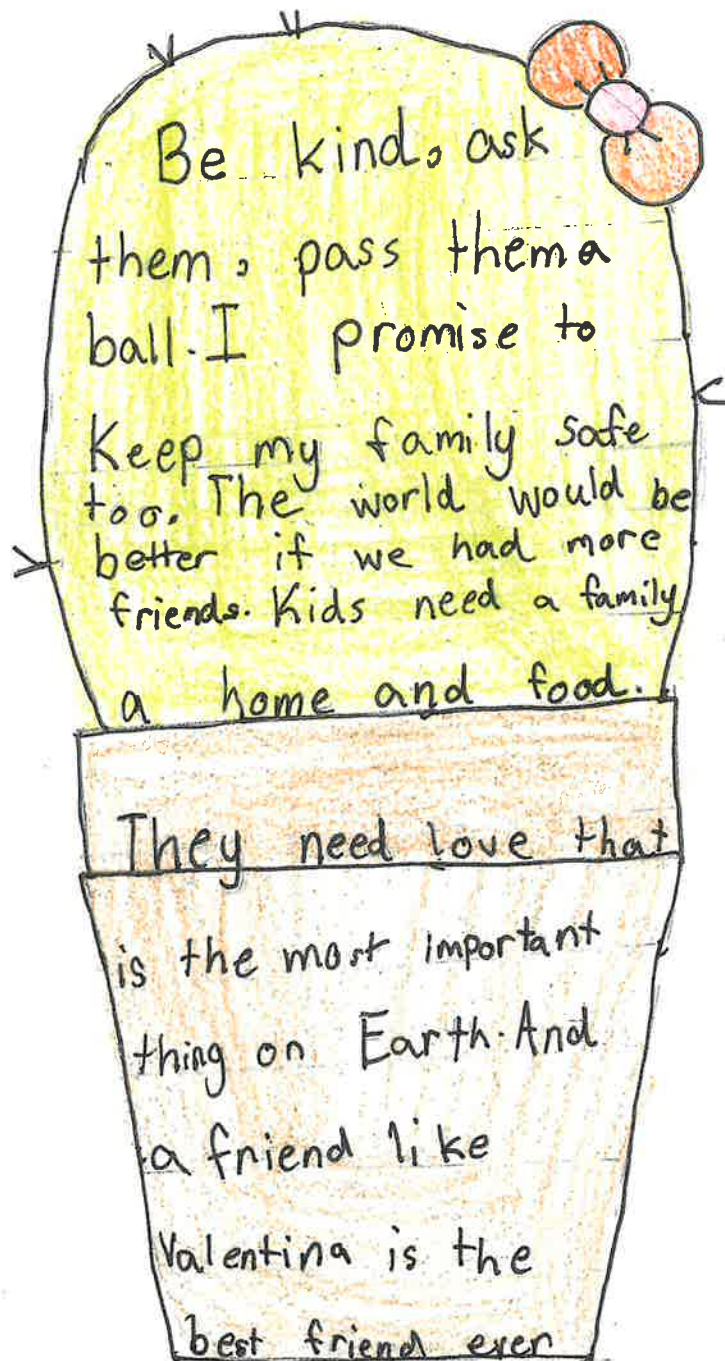 Be kind, ask
them, pass them a
ball. I promise to
Keep my family safe
too. The world would be
better if we had more
friends. Kids need a family
a home and food.
They need love that
is the most important
thing on Earth. And
a friend like
Valentina is the
best friend ever